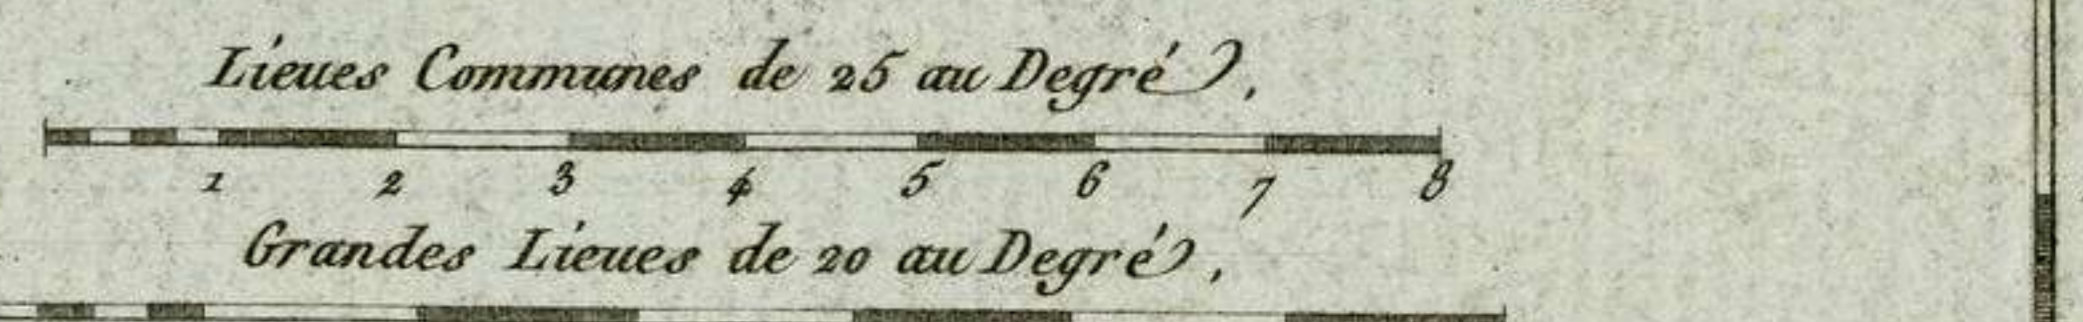 Lieues Communes de 25 au Degré,
1 2 3 4 5 6 7 8
Grandes Lieues de 20 au Degré,